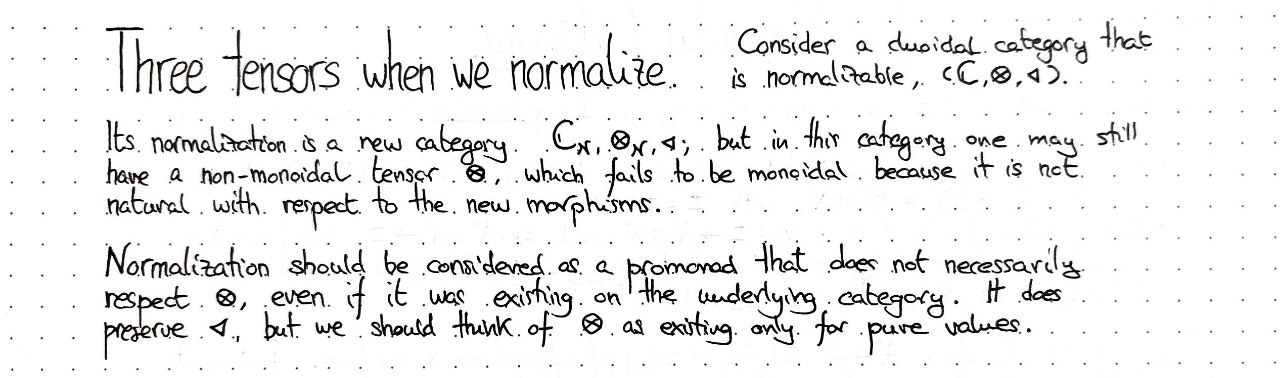 Three tensors when we normalize.
Consider a duoidal category that
is normalizable, (ℂ,⊗,◁).
Its normalization is a new category. ℂ_N, ⊗_N, ◁; but in this category one may still
have a non-monoidal tensor ⊗, which fails to be monoidal because it is not
natural with respect to the new morphisms.
Normalization should be considered as a promonad that does not necessarily
respect ⊗, even if it was existing on the underlying category. It does
preserve ◁, but we should think of ⊗ as existing only for pure values.